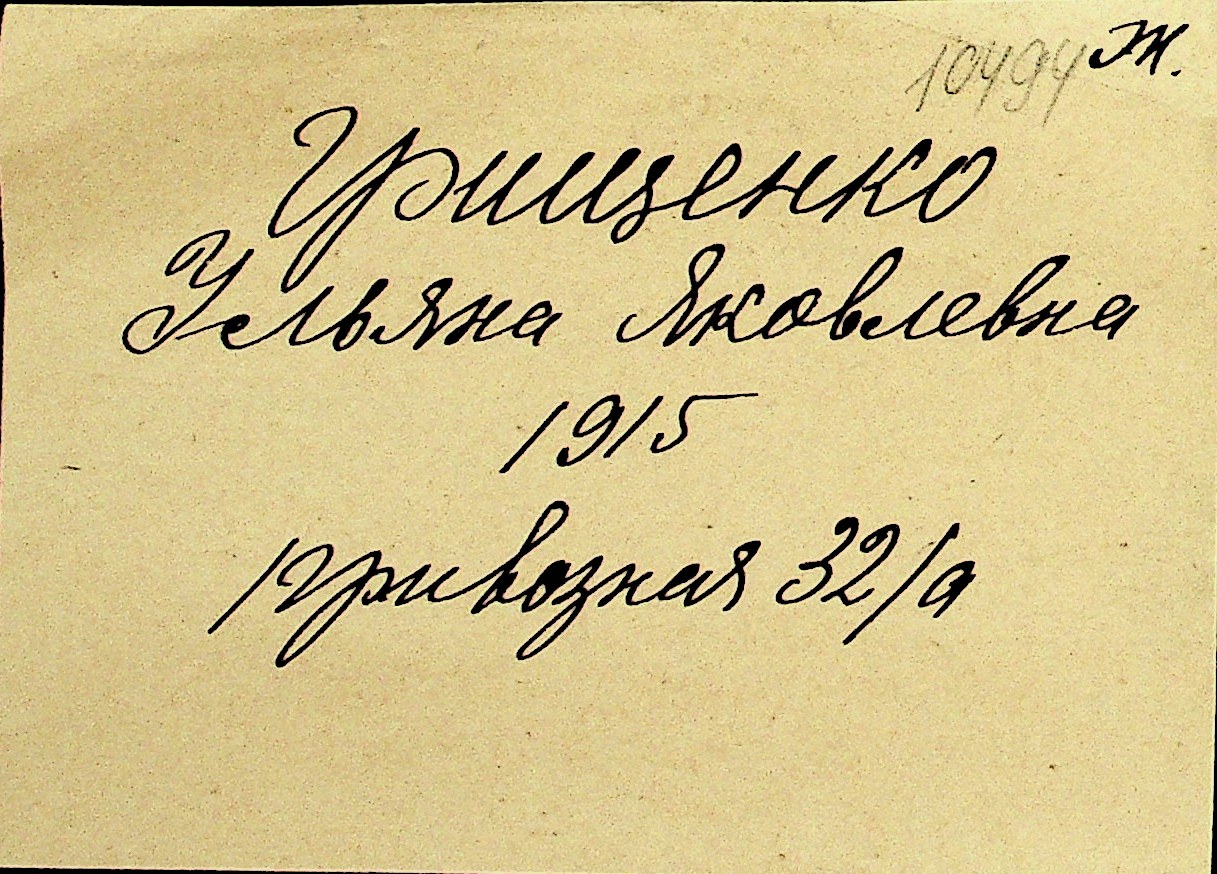 10494 Ж.
Грищенко
Ульяна Яковлевна
1915
Привозная 32/а